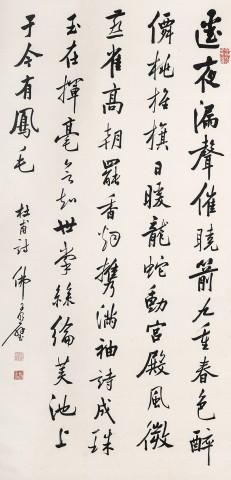 夜漏聲催曉箭九重春色醉
僊桃旌旗日暖龍蛇動宮殿風微
燕雀高朝罷香烟携滿袖詩成珠
玉在揮毫欲知世掌絲綸美池上
于今有鳳毛 杜甫詩 佛